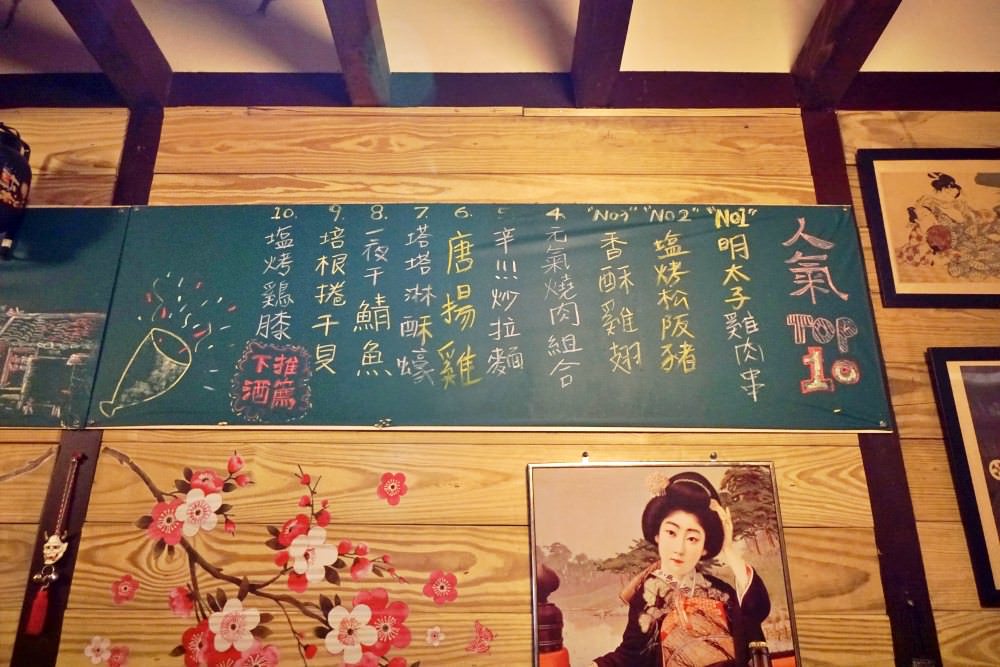 人氣
TOP
10
"No1"
明太子雞肉串
"No2"
塩烤松阪豬
"No3"
香酥雞翅
4.
元氣燒肉組合
5
辛!!!炒拉麵
6.
唐揚雞
7.
塔塔淋酥蠔
8.
一夜干鯖魚
9.
培根捲干貝
10.
塩烤鷄膝
推薦
下酒